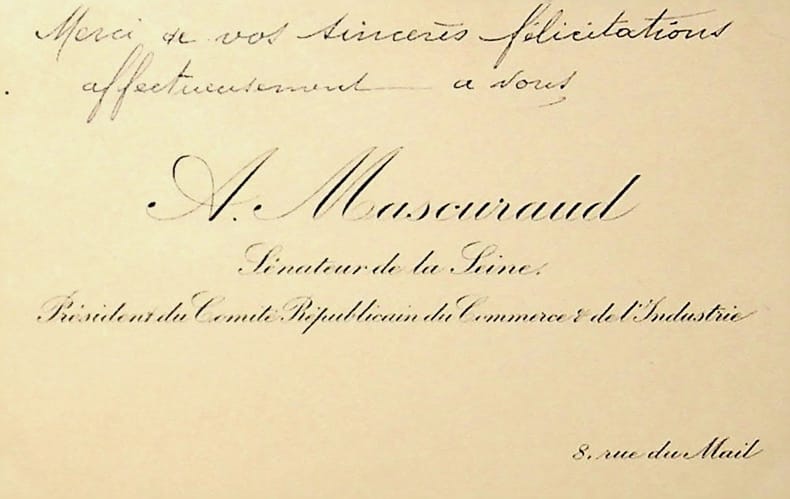 Merci de vos sincères félicitations
affectueusement a vous
A. Mascuraud
Sénateur de la Seine.
Président du Comité Républicain du Commerce & de l'Industrie
8, rue du Mail